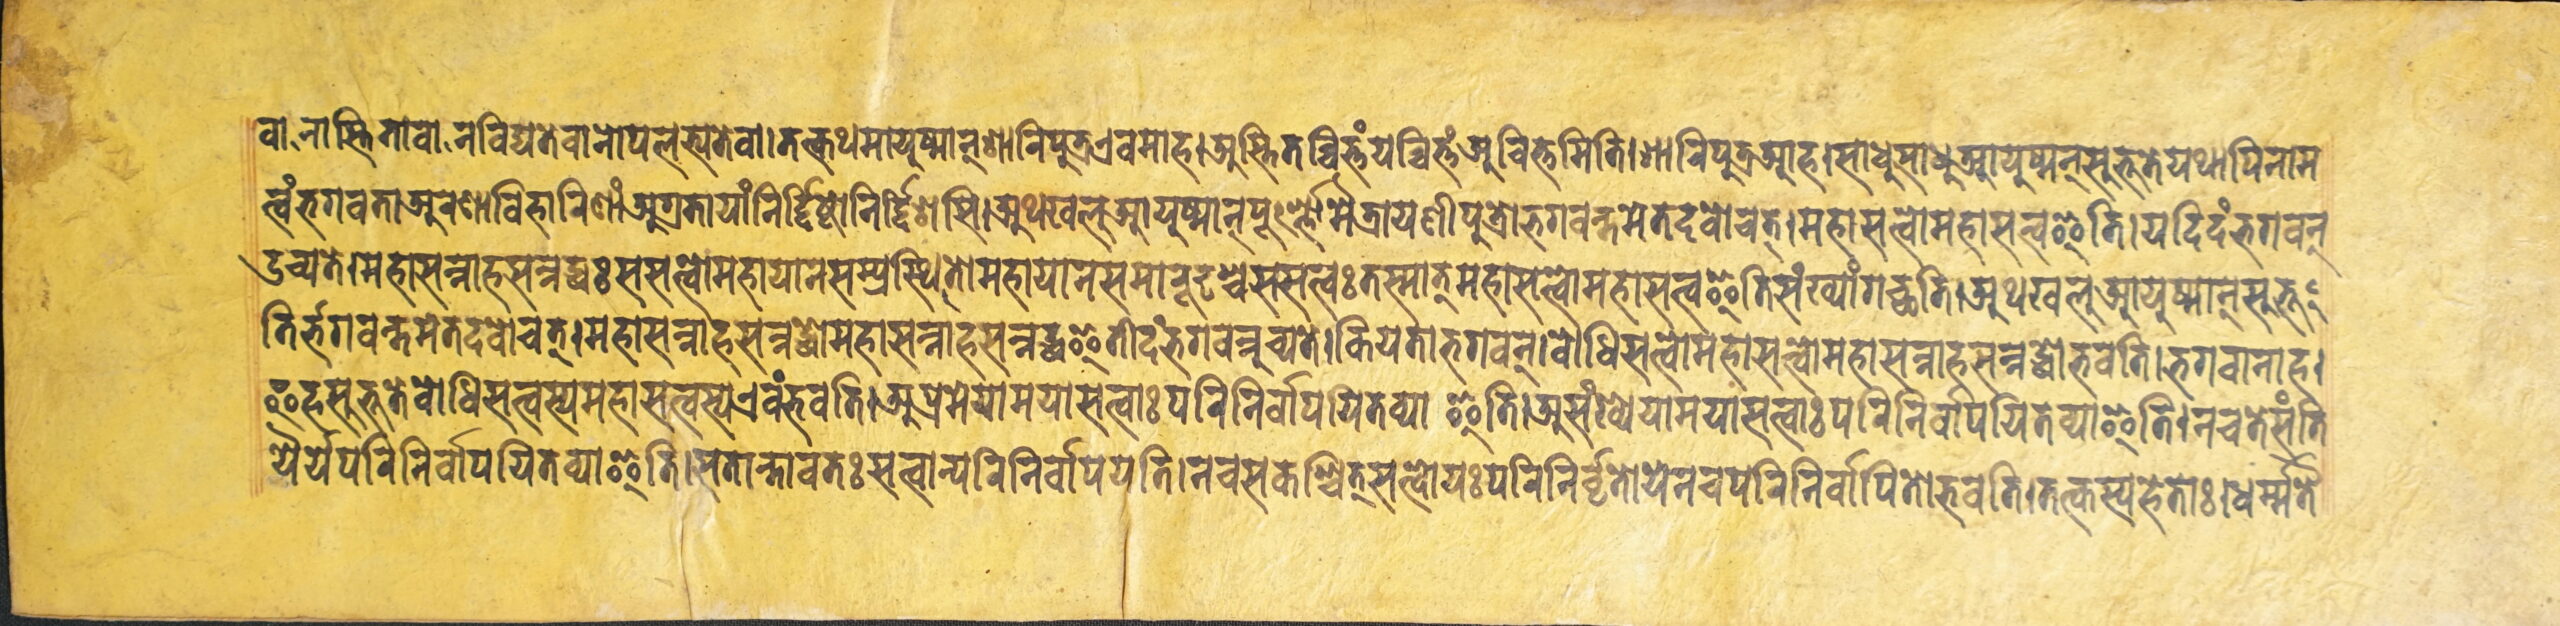 वा नास्तिता वा नविद्यतेवानोपलभ्यतेवा।तत्कथमायुष्मान्शारिपुत्रएवमाह।अस्तितच्चित्तंयच्चित्तंअचित्तमिति।शारिपुत्रआह।साधुसाधुआयुष्मन्सुभूतेयथापिनाम
त्वंभगवताअरणाविहारिणांअग्रतायांनिर्द्दिष्टोनिर्द्दिशसि।अथखलुआयुष्मान्पूर्ण्णोमैत्रायणीपुत्रोभगवन्तमेतदवोचत्।महासत्वोमहासत्वइति।यदिदंभगवन्
उच्यते।महासन्नाहसन्नद्धःससत्वोमहायानसम्प्रस्थितोमहायानसमारूढश्चससत्वःतस्मात्महासत्वोमहासत्वइतिसंख्यांगच्छति।अथखलुआयुष्मान्सुभू
तिर्भगवन्तमेतदवोचत्।महासन्नाहसन्नद्धोमहासन्नाहसन्नद्धइतीदंभगवन्नुच्यते।कियताभगवन्।बोधिसत्वोमहासत्वोमहासन्नाहसन्नद्धोभवति।भगवानाह।
इहसुभूतेबोधिसत्वस्यमहासत्वस्यएवंभवति।अप्रमेयामयासत्वाःपरिनिर्वापयितव्या इति।असंख्येयामयासत्वाःपरिनिर्वापयितव्याइति।नचतेसंति
यैर्येपरिनिर्वापयितव्याइति।सतान्तावतःसत्वान्परिनिर्वापयति।नचसकश्चित्सत्वोयःपरिनिर्वृतोयेनचपरिनिर्वापितोभवति।तत्कस्यहेतोः।धर्म्मतै